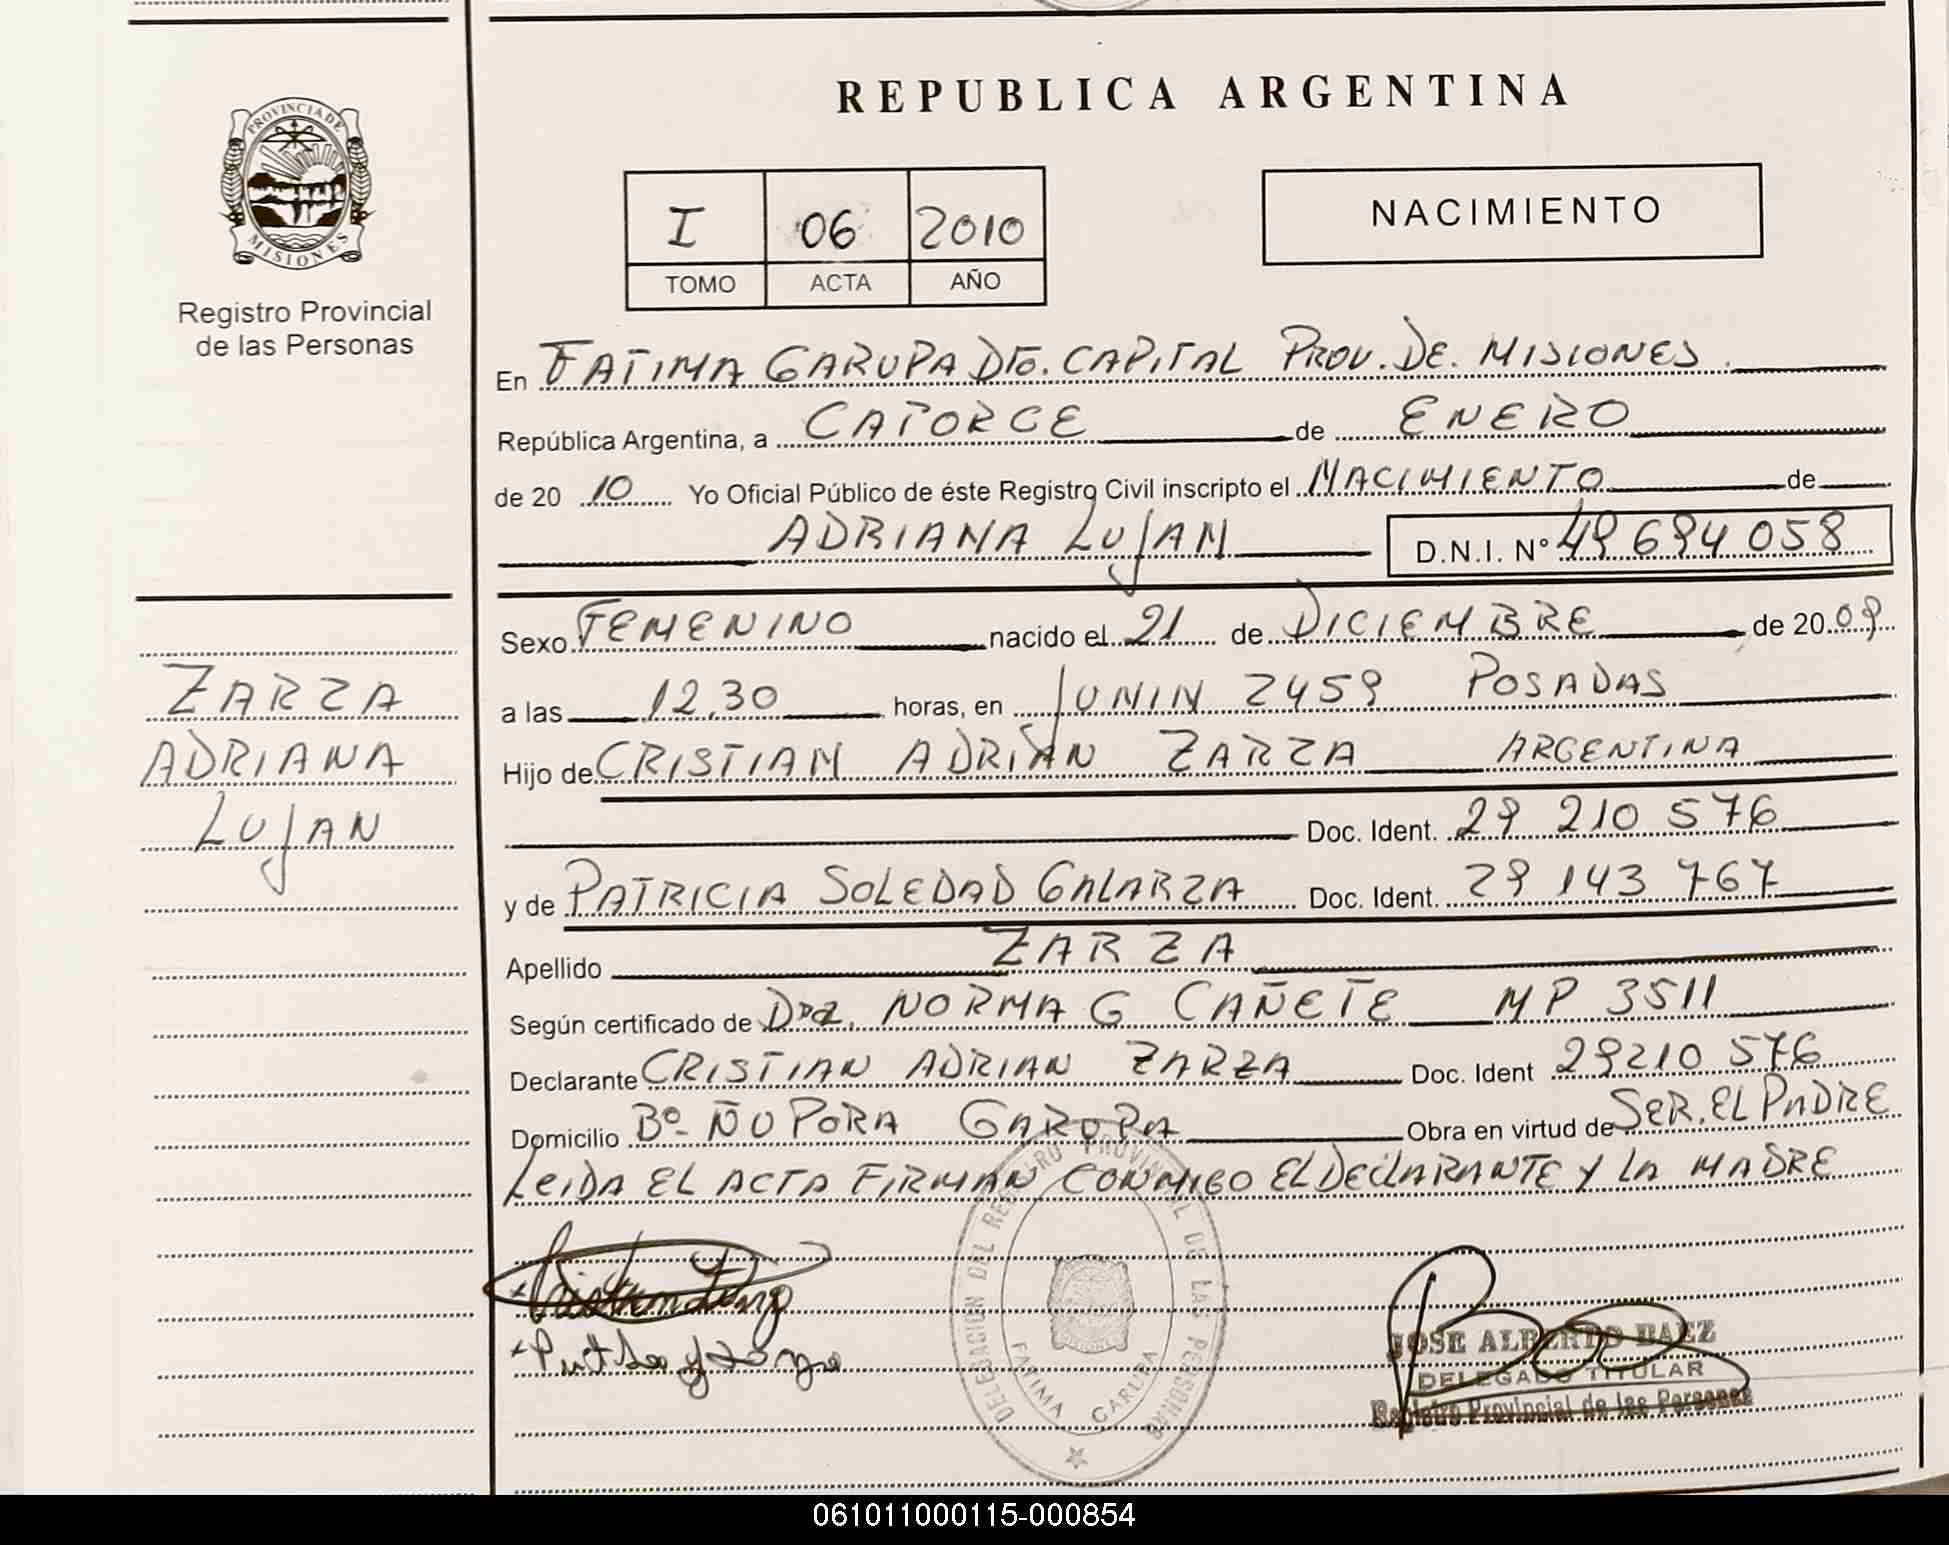 PROVINCIA DE
MISIONES
Registro Provincial
de las Personas
ZARZA
ADRIANA
LUJAN
REPUBLICA ARGENTINA
I 06 2010
TOMO ACTA AÑO
NACIMIENTO
En FATIMA GARUPA DTO. CAPITAL PROV. DE. MISIONES.
República Argentina, a CATORCE de ENERO
de 20 10 Yo Oficial Público de éste Registro Civil inscripto el NACIMIENTO de
ADRIANA LUJAN D.N.I. Nº 49 694 058
Sexo FEMENINO nacido el 21 de DICIEMBRE de 20 09
a las 12,30 horas, en JUNIN 2459 POSADAS
Hijo de CRISTIAN ADRIAN ZARZA ARGENTINA
Doc. Ident. 29 210 576
y de PATRICIA SOLEDAD GALARZA Doc. Ident. 29 143 767
Apellido ZARZA
Según certificado de Dra. NORMA G CAÑETE MP 3511
Declarante CRISTIAN ADRIAN ZARZA Doc. Ident 29210 576
Domicilio Bº- ÑU PORA GARUPA Obra en virtud de SER. EL PADRE
LEIDA EL ACTA FIRMAN CONMIGO EL DECLARANTE Y LA MADRE
DELEGACION DEL REGISTRO PROVINCIAL DE LAS PERSONAS
FATIMA GARUPA
JOSE ALBERTO BAEZ
DELEGADO TITULAR
Registro Provincial de las Personas
061011000115-000854